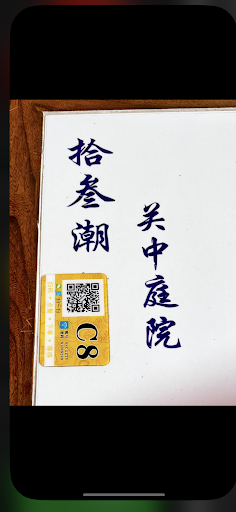 拾叁潮
关中庭院
C8